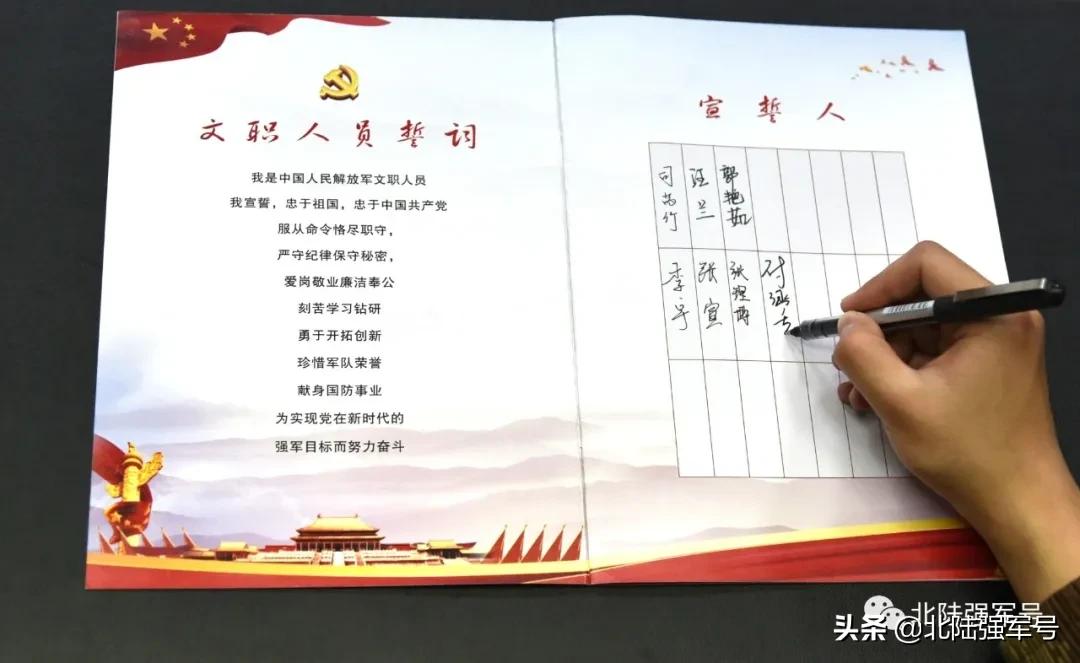 文职人员誓词
我是中国人民解放军文职人员
我宣誓，忠于祖国，忠于中国共产党
服从命令恪尽职守，
严守纪律保守秘密，
爱岗敬业廉洁奉公
刻苦学习钻研
勇于开拓创新
珍惜军队荣誉
献身国防事业
为实现党在新时代的
强军目标而努力奋斗
宣誓人
汪兰
郭艳茹
张宣
北陆强军号
头条 @北陆强军号